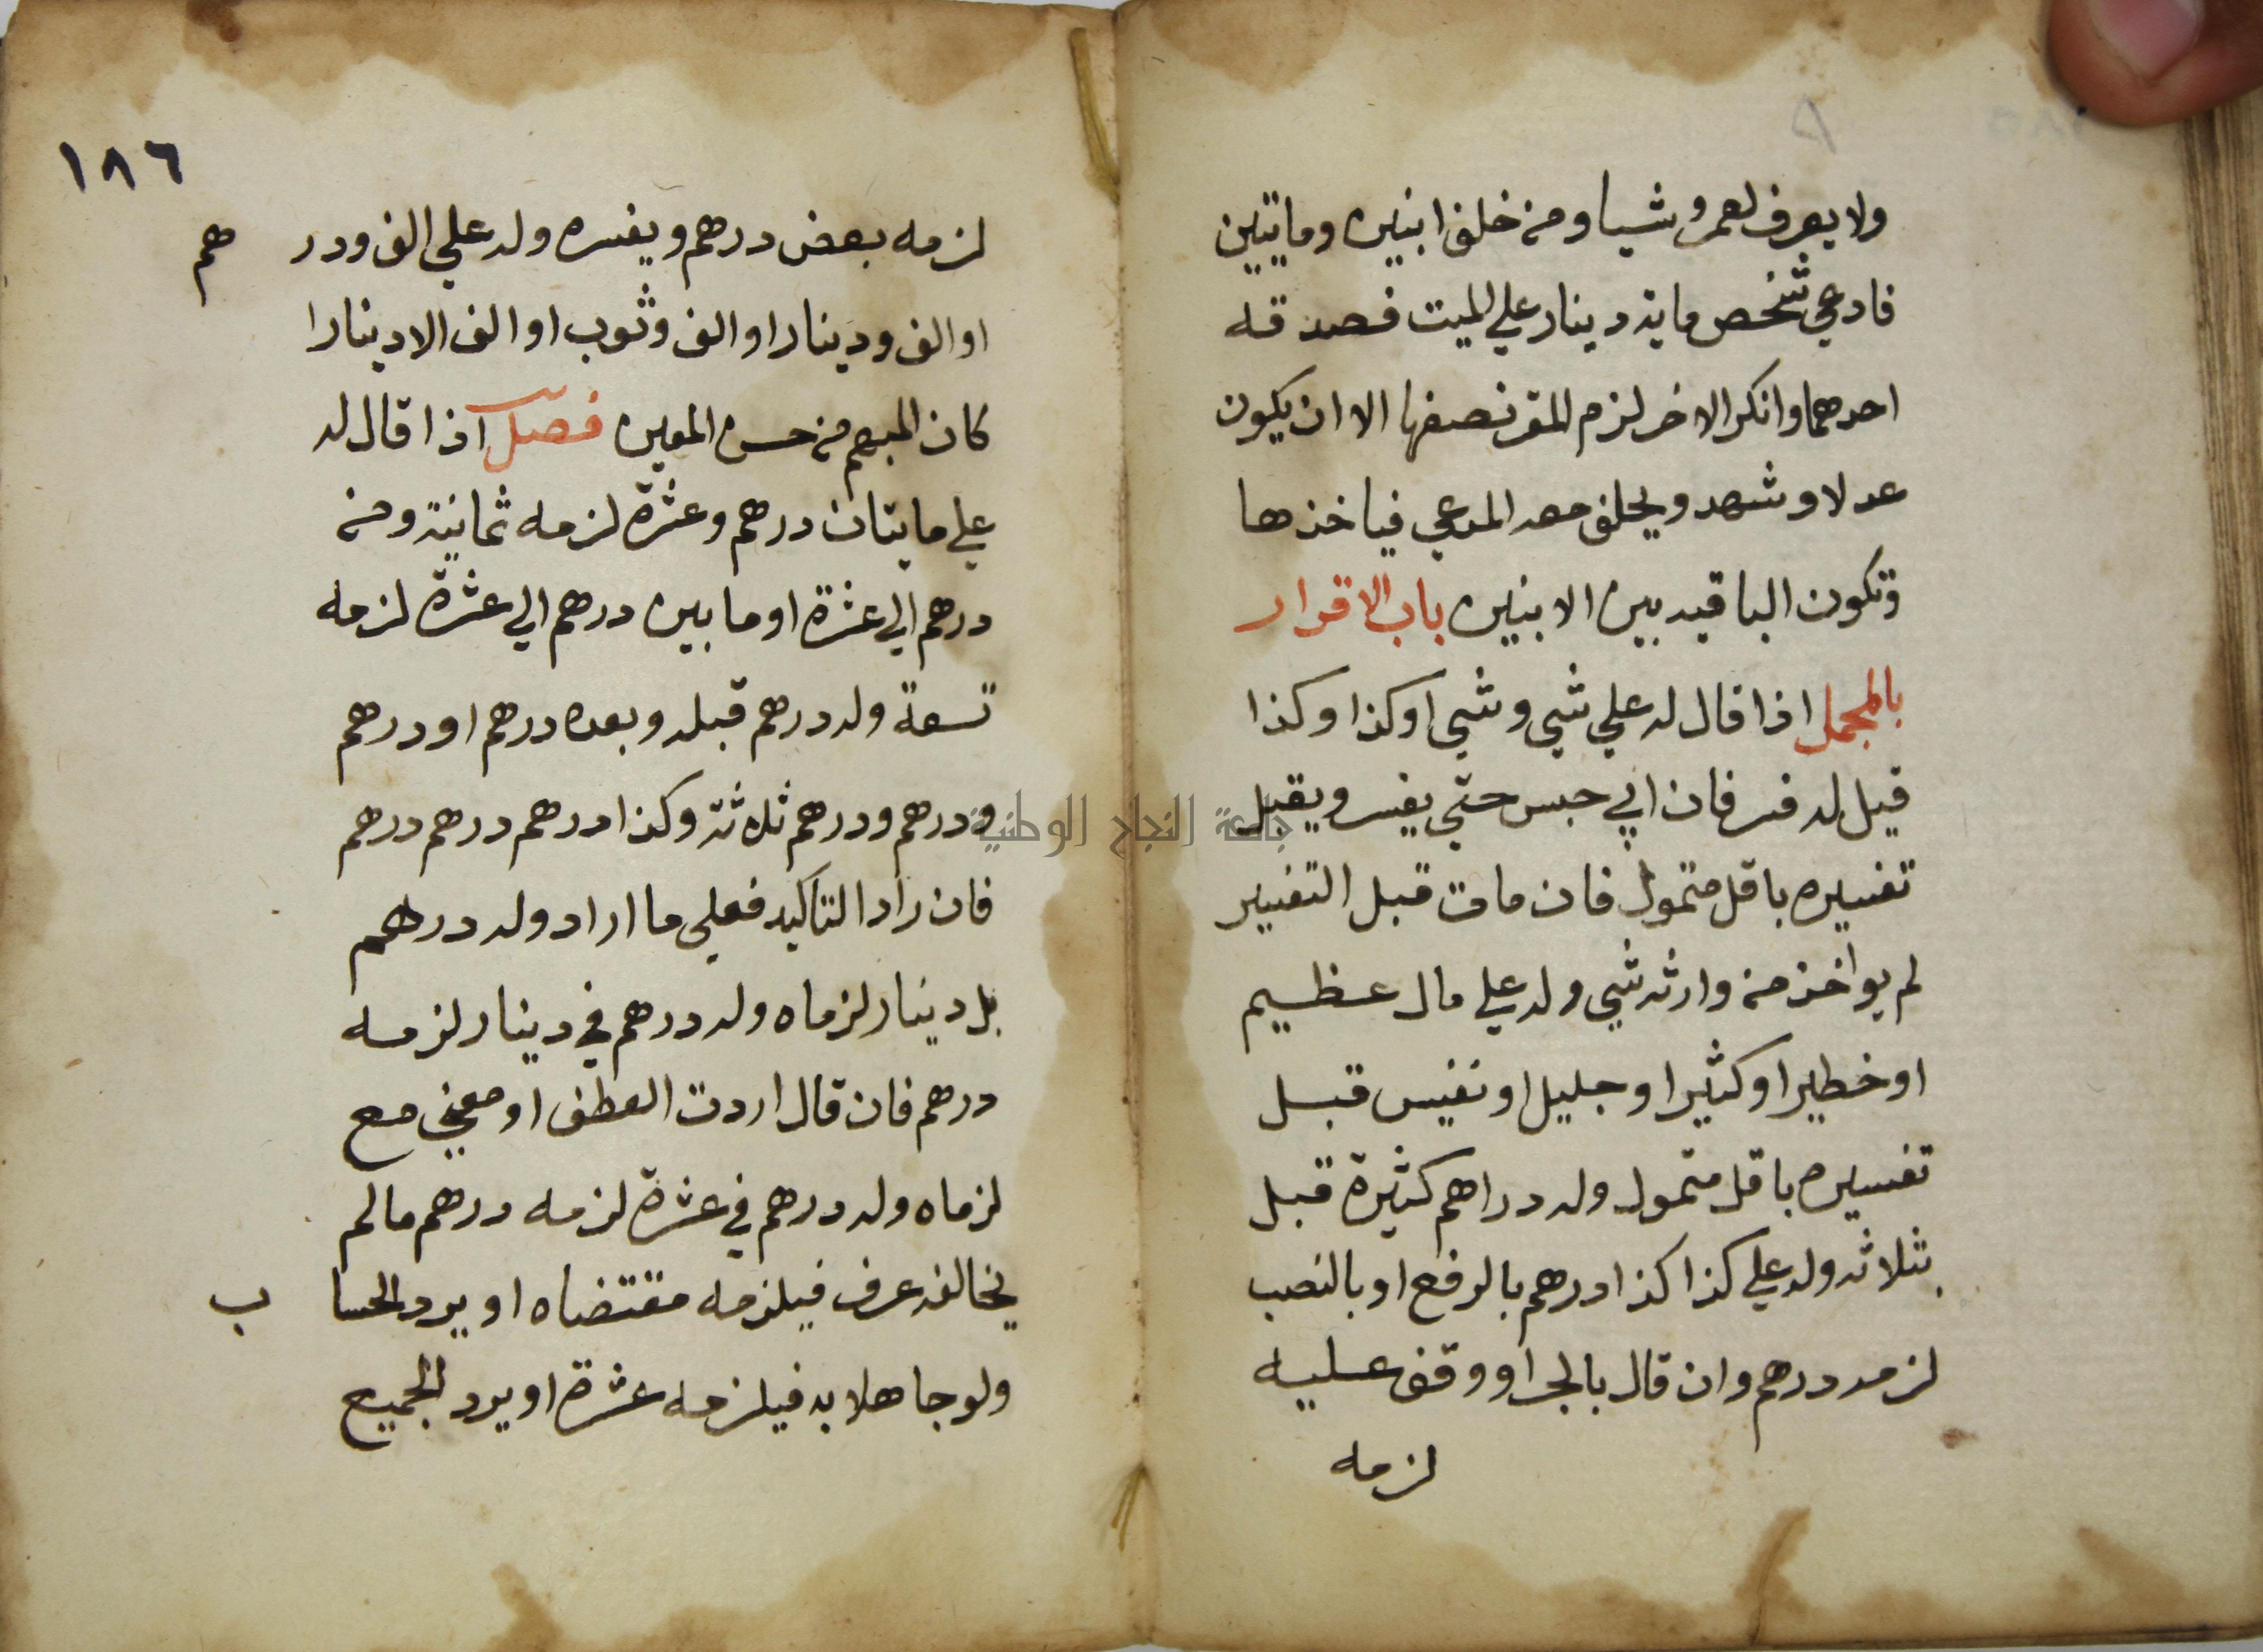 ولا يعرف لعمرو شيا ومن خلف ابنين ومايتين
فادعي شخص ماية دينار علي الميت فصدقه
احدهما وانكر الاخر لزم المقر نصفها الا ان يكون
عدلا وشهد ويحلف معه المدعي فياخذها
وتكون الباقيه بين الابنين باب الاقرار
بالمجمل اذا قال له علي شي وشي او كذا وكذا
قيل له فسر فان ابي حبس حتي يفسر ويقبل
تفسيره باقل متمول فان مات قبل التفسير
لم يواخذ من وارثه شي وله علي مال عظيم
او خطير او كثير او جليل او نفيس قبل
تفسيره باقل متمول وله دراهم كثيرة قبل
بثلاثه وله علي كذا كذا درهم بالرفع او بالنصب
لزمه درهم وان قال بالجر او وقف عليه
لزمه
١٨٦
لزمه بعض درهم ويفسره وله علي الف ودرهم
او الف ودينار او الف وثوب او الف الا دينارا
كان المبهم من جنس المعين فصل اذا قال له
علي ما بتان درهم وعشرة لزمه ثمانية ومن
درهم الي عشرة او ما بين درهم الي عشرة لزمه
تسعة وله درهم قبله وبعده درهم او درهم
ودرهم ودرهم ثلاثة وكذا درهم درهم درهم
فان راد التاكيد فعلي ما اراد وله درهم
بل دينار لزماه وله درهم في دينار لزمه
درهم فان قال اردت العطف او معني مع
لزماه وله درهم في عشرة لزمه درهم مالم
يخالفه عرف فيلزمه مقتضاه او يرد الحساب
ولو جاهلا به فيلزمه عشرة او يرد الجميع
جامعة النجاح الوطنية